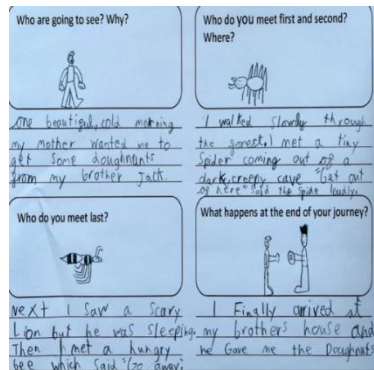 Who are going to see? Why?
one beautiful, cold morning
my mother wanted me to
get some doughnuts
from my brother Jack.
Who do you meet first and second?
Where?
I walked slowly through
the forest. I met a tiny
spider coming out of a
dark, creepy cave "Get out
of here" said the spider loudly.
Who do you meet last?
Next I saw a scary
Lion but he was sleeping.
Then I met a hungry
bee which said "Go away!
What happens at the end of your journey?
I Finally arrived at
my brothers house and
he Gave me the Doughnuts